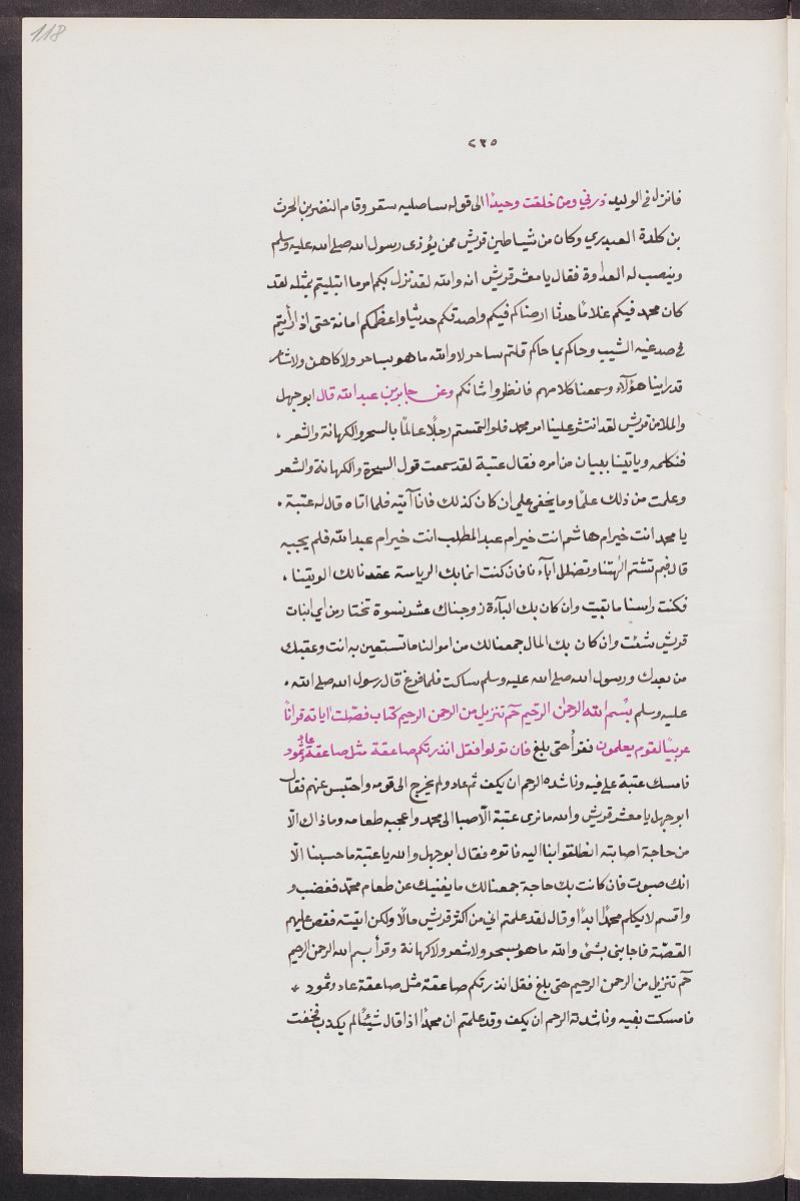 118
٢٣٥
فانزل في الوليد ذرني ومن خلقت وحيدًا الى قوله ساصليه سقر وقام النضر بن الحرث
بن كلدة العبدري وكان من شياطين قريش ممن يؤذى رسول الله صلى الله عليه وسلم
وينصب له العداوة فقال يا معشر قريش انه والله لقد نزل بكم امر ما ابتليتم بمثله لقد
كان محمد فيكم غلامًا حدثا ارضاكم فيكم واصدقكم حديثا واعظكم امانة حتى اذا رأيتم
في صدغيه الشيب وجاكم بما جاكم قلتم ساحر لا والله ما هو بساحر ولا كاهن ولا شاعر
قد راينا هؤلآء وسمعنا كلامهم فانظروا شانكم وعن جابر بن عبد الله قال ابو جهل
والملا من قريش لقد انتشر علينا امر محمد فلو التمستم رجلًا عالمًا بالسحر والكهانة والشعر ،
فنكلمه وياتينا ببيان من امره فقال عتبة لقد سمعت قول السحرة والكهانة والشعر
وعلمت من ذلك علمًا وما يخفى علي ان كان كذلك فانا آتيه فلما اتاه قال له عتبة .
يا محمد انت خير ام هاشم انت خير ام عبد المطلب انت خير ام عبد الله فلم يجبه
قال فبم تشتم الهتنا وتضلل ابآءنا فان كنت انما بك الرياسة عقدنا لك الويتنا ،
فكنت راسنا ما بقيت وان كان بك البآءة زوجناك عشر نسوة تختار من اي ابنات
قريش شئت وان كان بك المال جمعنا لك من اموالنا ما تستعين به انت وعقبك
من بعدك ورسول الله صلى الله عليه وسلم ساكت فلما فرغ قال رسول الله صلى الله .
عليه وسلم بسم الله الرحمن الرحيم حم تنزيل من الرحمن الرحيم كتاب فصلت اياته قرانًا
عربيًا لقوم يعلمون فقرأ حتى بلغ فان تولوا فقل انذرتكم صاعقة مثل صاعقة عاد وثمود
فامسك عتبة على فيه وناشده الرحم ان يكف ثم عاد ولم يخرج الى قومه واحتبس عنهم فقال
ابو جهل يا معشر قريش والله ما نرى عتبة الّا صبا الى محمد واعجبه طعامه وما ذاك الّا
من حاجة اصابته انطلقوا بنا اليه فاتوه فقال ابو جهل والله يا عتبة ما حسبنا الّا
انك صبوت فان كانت بك حاجة جمعنا لك ما يغنيك عن طعام محمد فغضب و
واقسم لا يكلم محمدًا ابدًا وقال لقد علمتم اني من اكثر قريش مالًا ولكن اتيته فقص عليهم
القصّة فاجابنى بشئ والله ما هو بسحر ولا شعر ولا كهانة وقرأ بسم الله الرحمن الرحيم
حم تنزيل من الرحمن الرحيم حتى بلغ فقل انذرتكم صاعقة مثل صاعقة عاد وثمود *
فامسكت بفيه وناشدته الرحم ان يكف وقد علمتم ان محمدًا اذا قال شيئًا لم يكذب فخفت